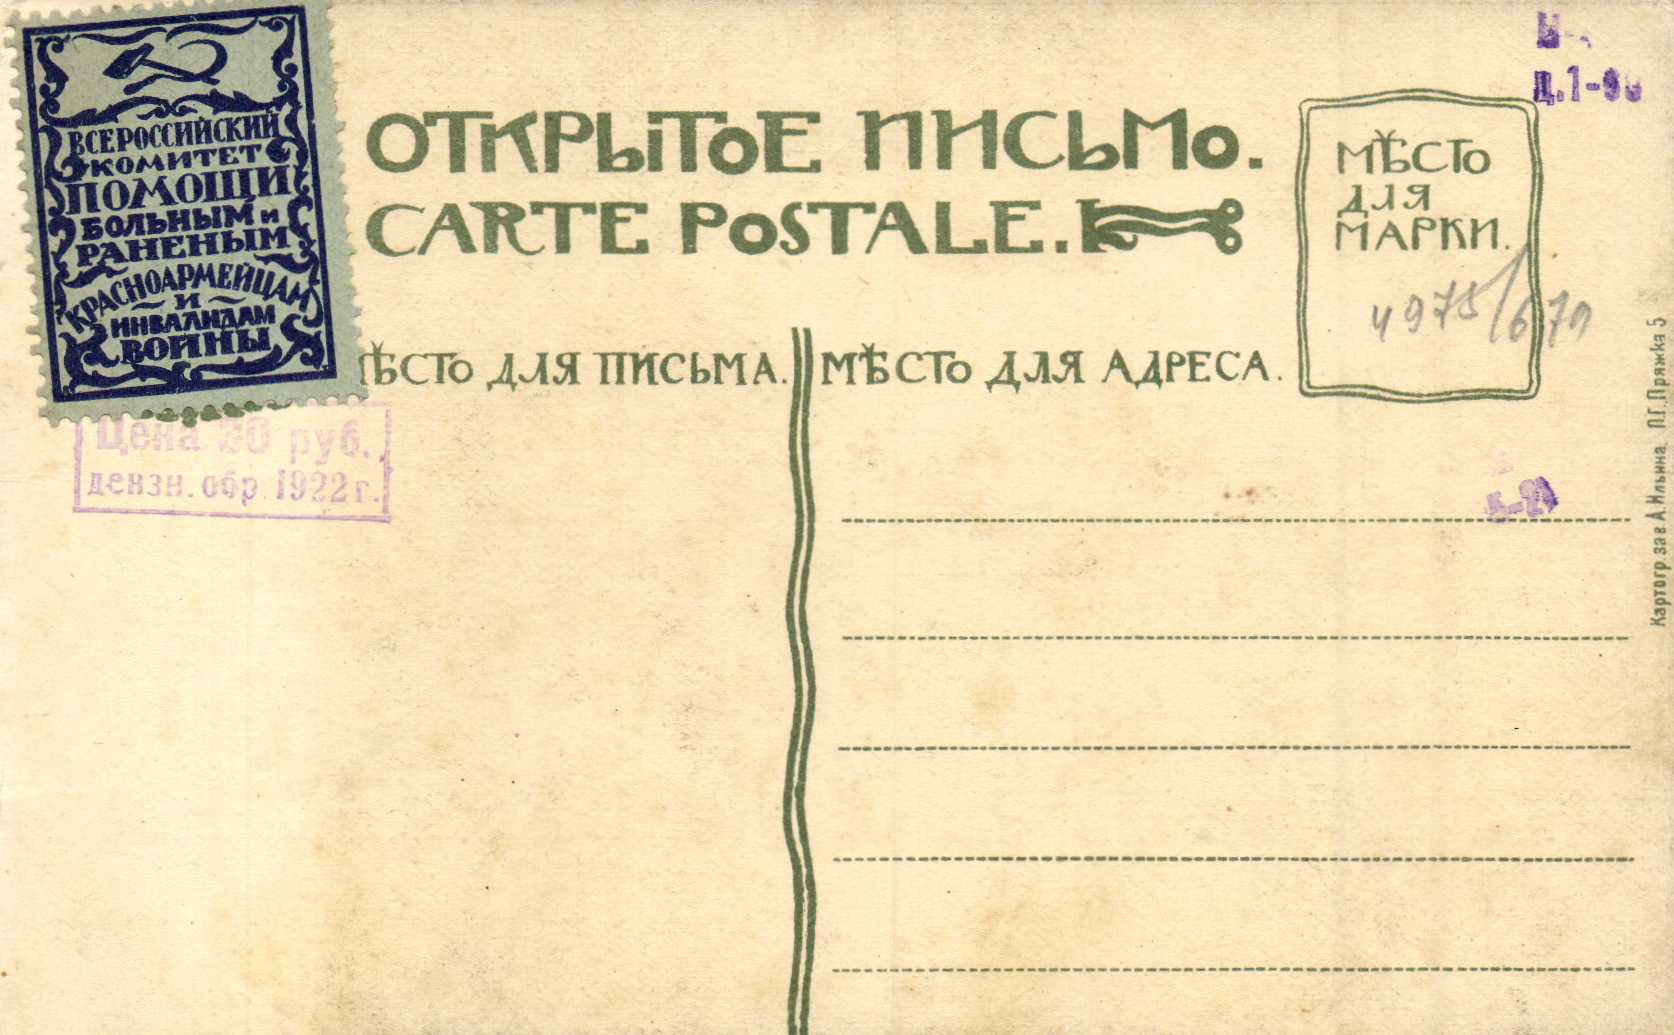 ВСЕРОССИЙСКИЙ
КОМИТЕТ
ПОМОЩИ
БОЛЬНЫМ И
РАНЕНЫМ
КРАСНОАРМЕЙЦАМ
И
ИНВАЛИДАМ
ВОЙНЫ
ОТКРЫТОЕ ПИСЬМО.
CARTE POSTALE.
МѢСТО
ДЛЯ
МАРКИ.
4975/679
ѢСТО ДЛЯ ПИСЬМА.
МѢСТО ДЛЯ АДРЕСА.
Цена 30 руб.
дензн. обр. 1922 г.
Д.1-90
Картогр. зав А.Ильина П.Г. Пряжка 5